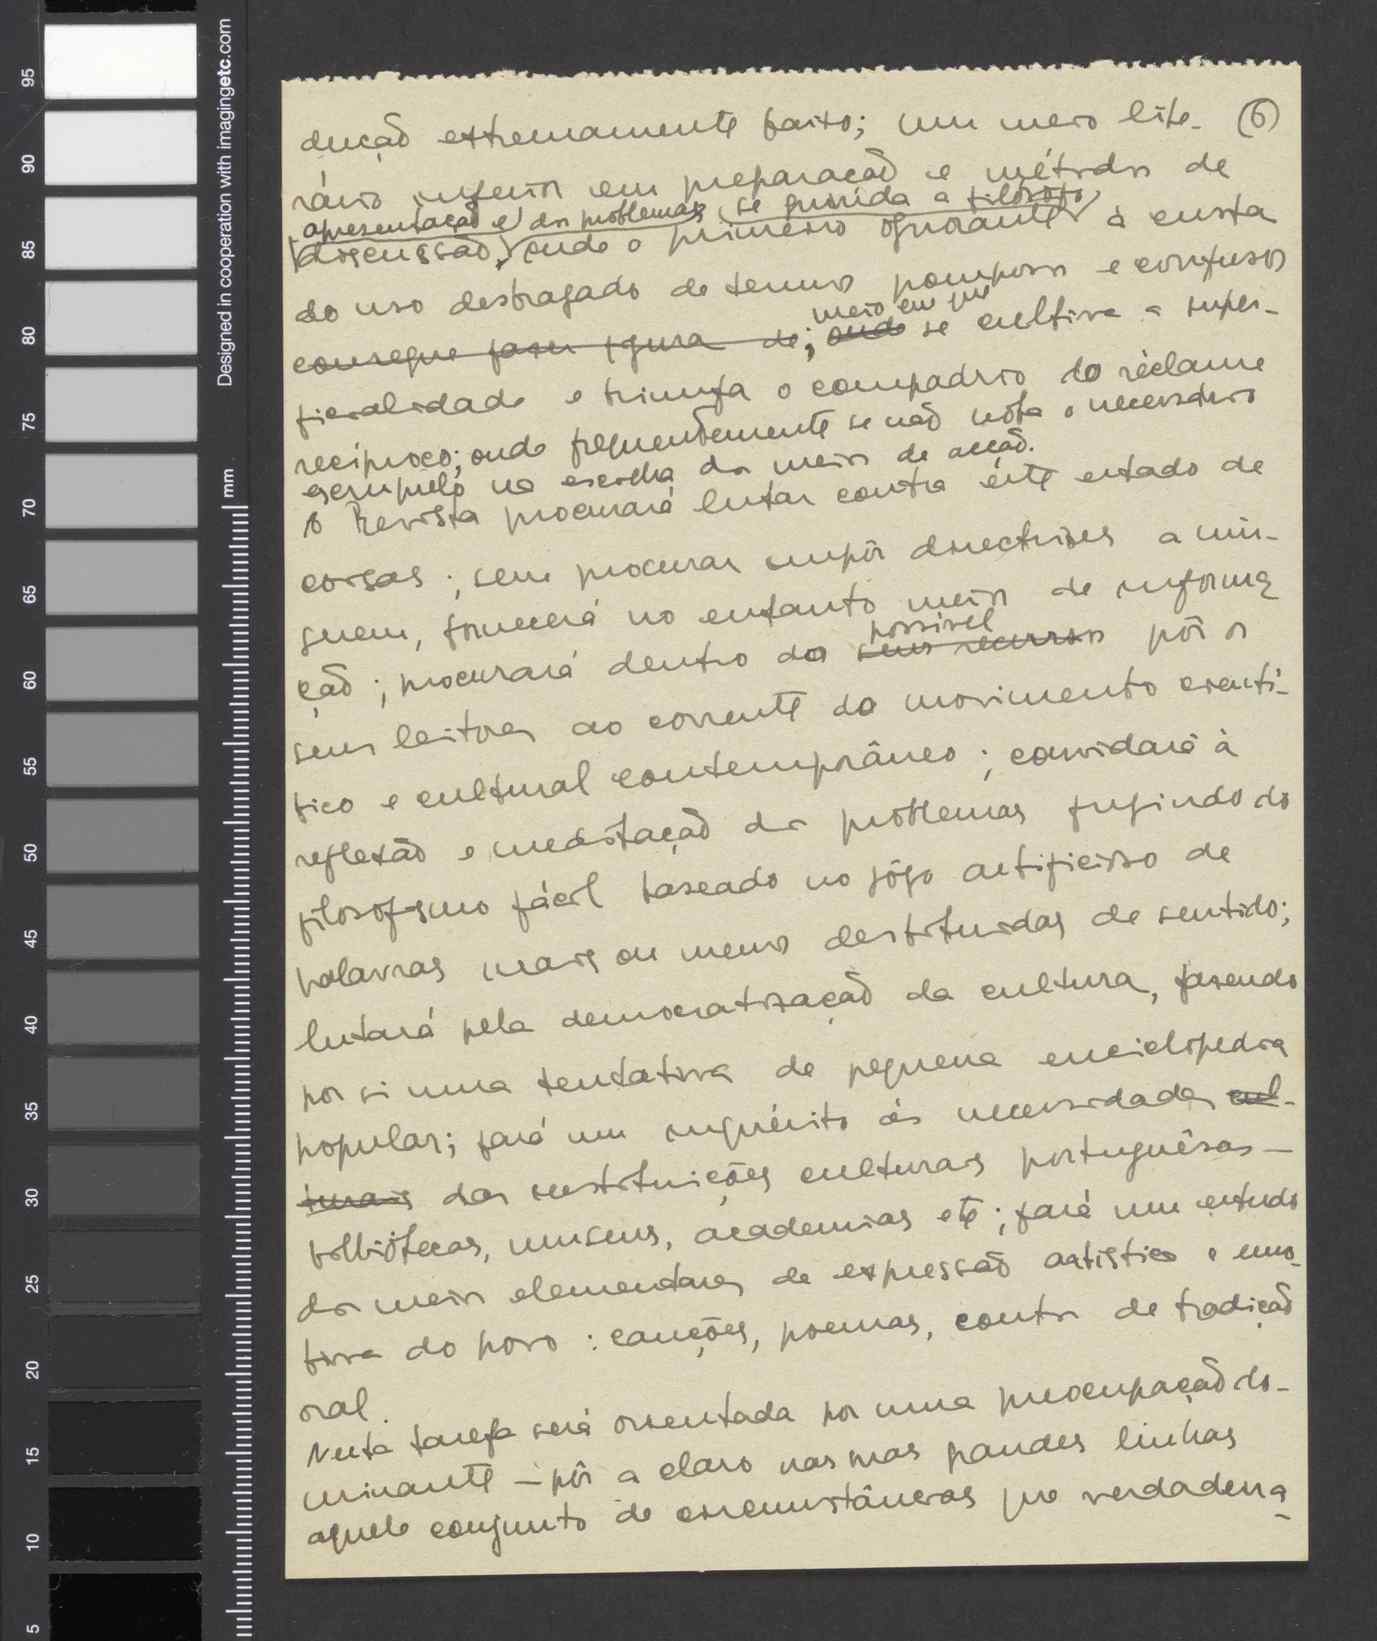 dução extremamente baixo; um meio lite- (6)
rário inferior em preparação e métodos de
apresentação e dos problemas, se guinda a filósofo
discussão, onde o primeiro ignorante à custa
do uso desbragado de termos pomposos e confusos
meio em que
consegue fazer figura de; onde se cultiva a super-
ficialidade e triunfa o compadrio do réclame
recíproco; onde frequentemente se não nota o necessário
escrupulo na escolha dos meios de acção.
A Revista procurará lutar contra êste estado de
coisas; sem procurar impôr directrizes a nin-
guem, fornecerá no entanto meios de informa
possivel
ção; procurará dentro do seus recursos pôr os
seus leitores ao corrente do movimento cientí-
fico e cultural contemporâneo; convidará à
reflexão e meditação dos problemas fugindo do
filosofismo fácil baseado no jôgo artificioso de
palavras mais ou menos destituidas de sentido;
lutará pela democratização da cultura, fazendo
por si uma tentativa de pequena enciclopedia
popular; fará um inquérito às necessidades cul-
turais das instituições culturais portuguêsas –
bibliotecas, museus, academias etc; fará um estudo
dos meios elementares de expressão artistica e emo-
tiva do povo: canções, poemas, contos de tradição
oral.
Nesta tarefa será orientada por uma preocupação do-
minante – pôr a claro nas suas grandes linhas
aquele conjunto de circunstâncias que verdadeira-
Designed in cooperation with imagingetc.com
mm
95
90
85
80
75
70
65
60
55
50
45
40
35
30
25
20
15
10
5